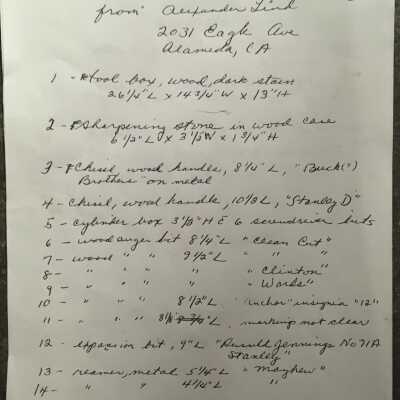 from Alexander Lind
2031 Eagle Ave
Alameda, CA
1 - Tool box, wood, dark stain
26 1/2" L x 14 3/4" W x 13" H
2 - Sharpening stone in wood case
6 1/2" L x 3 1/2" W x 1 3/4" H
3 - Chisel, wood handle, 8 1/4" L, "Buck(")
Brothers" on metal
4 - Chisel, wood handle, 10 L, "Stanley D"
5 - cylinder box 3 1/2" H 6 screwdriver bits
6 - wood auger bit 8 1/4" L "Clean Cut"
7 - wood " " 9 1/2" L " " "
8 - " " " " "Clinton"
9 - " " " " "Words"
10 - " " " 8 1/2" L "anchor" insignia "12"
11 - " " " L marking not clear
12 - expansion bit, 9" L "Russell Jennings No 71A
Stanley"
13 - reamer, metal 5 1/4" L "Mayhew"
14 - " " 4 1/4" L "